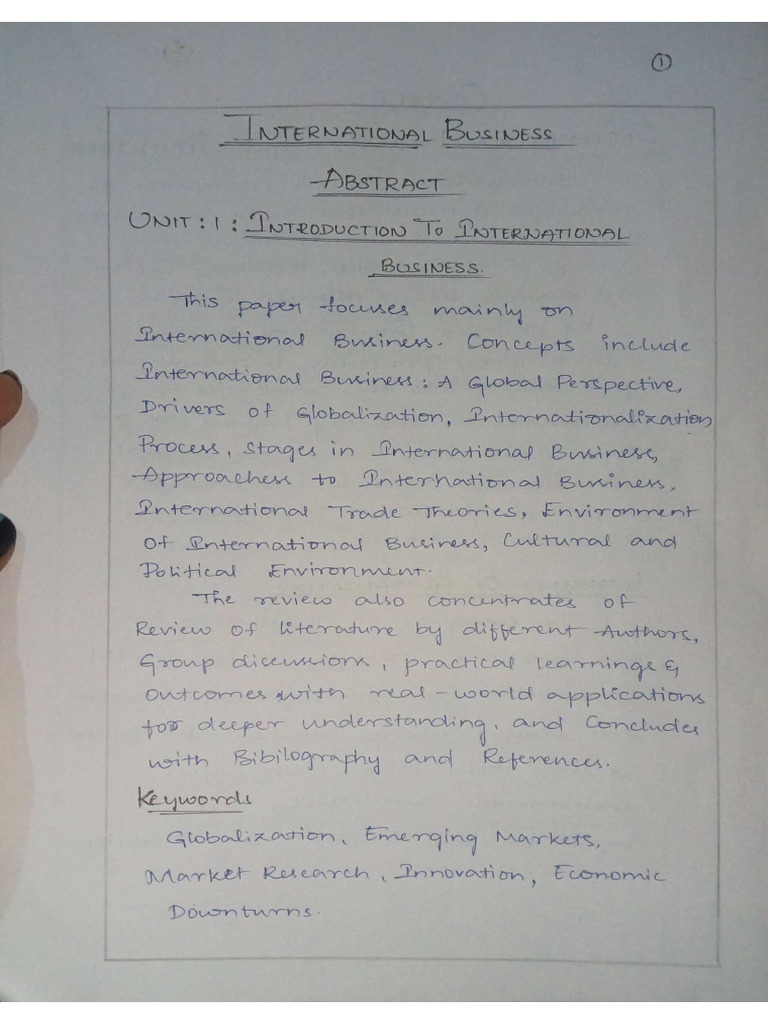 1
INTERNATIONAL BUSINESS
ABSTRACT
UNIT: 1: INTRODUCTION TO INTERNATIONAL
BUSINESS.
This paper focuses mainly on
International Business. Concepts include
International Business: A Global Perspective,
Drivers of Globalization, Internationalization
Process, Stages in International Business,
Approachess to International Business,
International Trade Theories, Environment
of International Business, Cultural and
Political Environment.
The review also concentrates of
Review of literature by different Authors,
Group discussions, practical learnings &
outcomes with real-world applications
for deeper understanding, and Concludes
with Bibilography and References.
Keywords
Globalization, Emerging Markets,
Market Research, Innovation, Economic
Downturns.